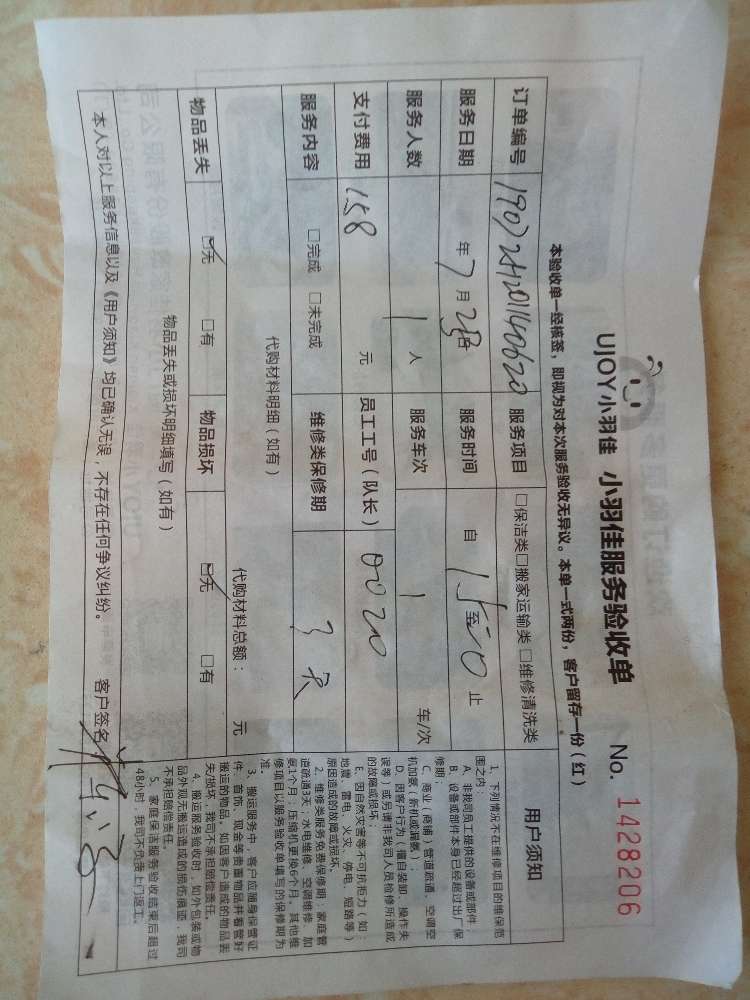 UJOY小羽佳 小羽佳服务验收单 No. 1428206
本验收单一经核签，即视为对本次服务验收无异议。本单一式两份，客户留存一份（红）
订单编号 服务项目 □保洁类□搬家运输类□维修清洗类
服务日期 年 7 月 28 日 服务时间 自 15 至 止
服务人数 1 人 服务车次 1 车/次
支付费用 158 元 员工工号（队长） 0020
服务内容 □完成 □未完成 维修类保修期 3天
代购材料明细（如有）
代购材料总额： 元
物品丢失 ☑无 □有 物品损坏 ☑无 □有
物品丢失或损坏明细填写（如有）
本人对以上服务信息以及《用户须知》均已确认无误，不存在任何争议纠纷。 客户签名
用户须知
1、下列情况不在维修项目的维保范
围之内：
A、非我司员工提供的设备或部件
B、设备或部件本身已经超过出厂保
修期；
C、商业（商铺）管道疏通、空调空
机加氨（新机或漏氨）；
D、因客户行为（擅自装卸、操作失
误等）或另请非我司人员检修所造成
的故障或损坏；
E、因自然灾害等不可抗拒力（如：
地震、雷电、火灾、停电、短路等）
原因造成的故障或损坏。
2、维修类服务免费保修期：家庭管
道疏通3天；水电维修、空调维修、加
氨1个月；压缩机更换6个月。其他维
修项目以服务验收单填写的保修期为
准。
3、搬运服务中，客户应随身保管证
件、首饰、现金等贵重物品并看管好
搬运的物品，如因客户造成的物品丢
失/损坏，我司不承担赔偿责任。
4、搬运服务验收时，如外包装或物
品外观无搬运造成的损伤痕迹，我司
不承担赔偿责任。
5、家庭保洁服务验收结束后超过
48小时，我司不负责上门返工。